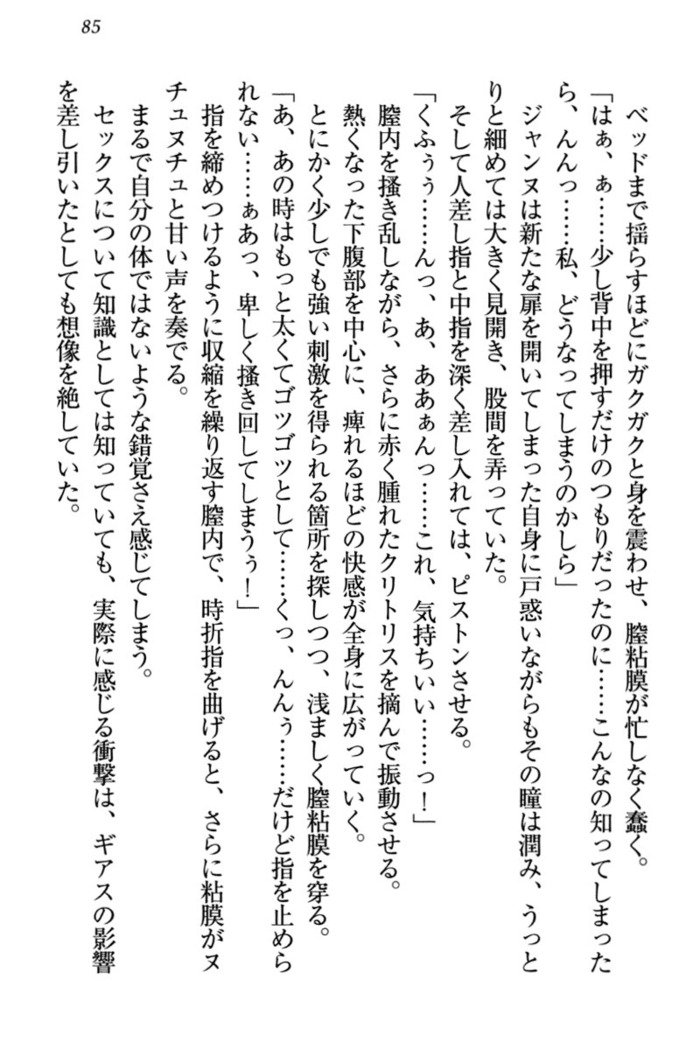 85
ベッドまで揺らすほどにガクガクと身を震わせ、膣粘膜が忙しなく蠢く。
「はぁ、ぁ……少し背中を押すだけのつもりだったのに……こんなの知ってしまった
ら、んんっ……私、どうなってしまうのかしら」
ジャンヌは新たな扉を開いてしまった自身に戸惑いながらもその瞳は潤み、うっと
りと細めては大きく見開き、股間を弄っていた。
そして人差し指と中指を深く差し入れては、ピストンさせる。
「くふぅぅ……んっ、あ、ああぁんっ……これ、気持ちいい……っ！」
膣内を掻き乱しながら、さらに赤く腫れたクリトリスを摘んで振動させる。
熱くなった下腹部を中心に、痺れるほどの快感が全身に広がっていく。
とにかく少しでも強い刺激を得られる箇所を探しつつ、浅ましく膣粘膜を穿る。
「あ、あの時はもっと太くてゴツゴツとして……くっ、んんぅ……だけど指を止めら
れない……ぁあっ、卑しく掻き回してしまうぅ！」
指を締めつけるように収縮を繰り返す膣内で、時折指を曲げると、さらに粘膜がヌ
チュヌチュと甘い声を奏でる。
まるで自分の体ではないような錯覚さえ感じてしまう。
セックスについて知識としては知っていても、実際に感じる衝撃は、ギアスの影響
を差し引いたとしても想像を絶していた。